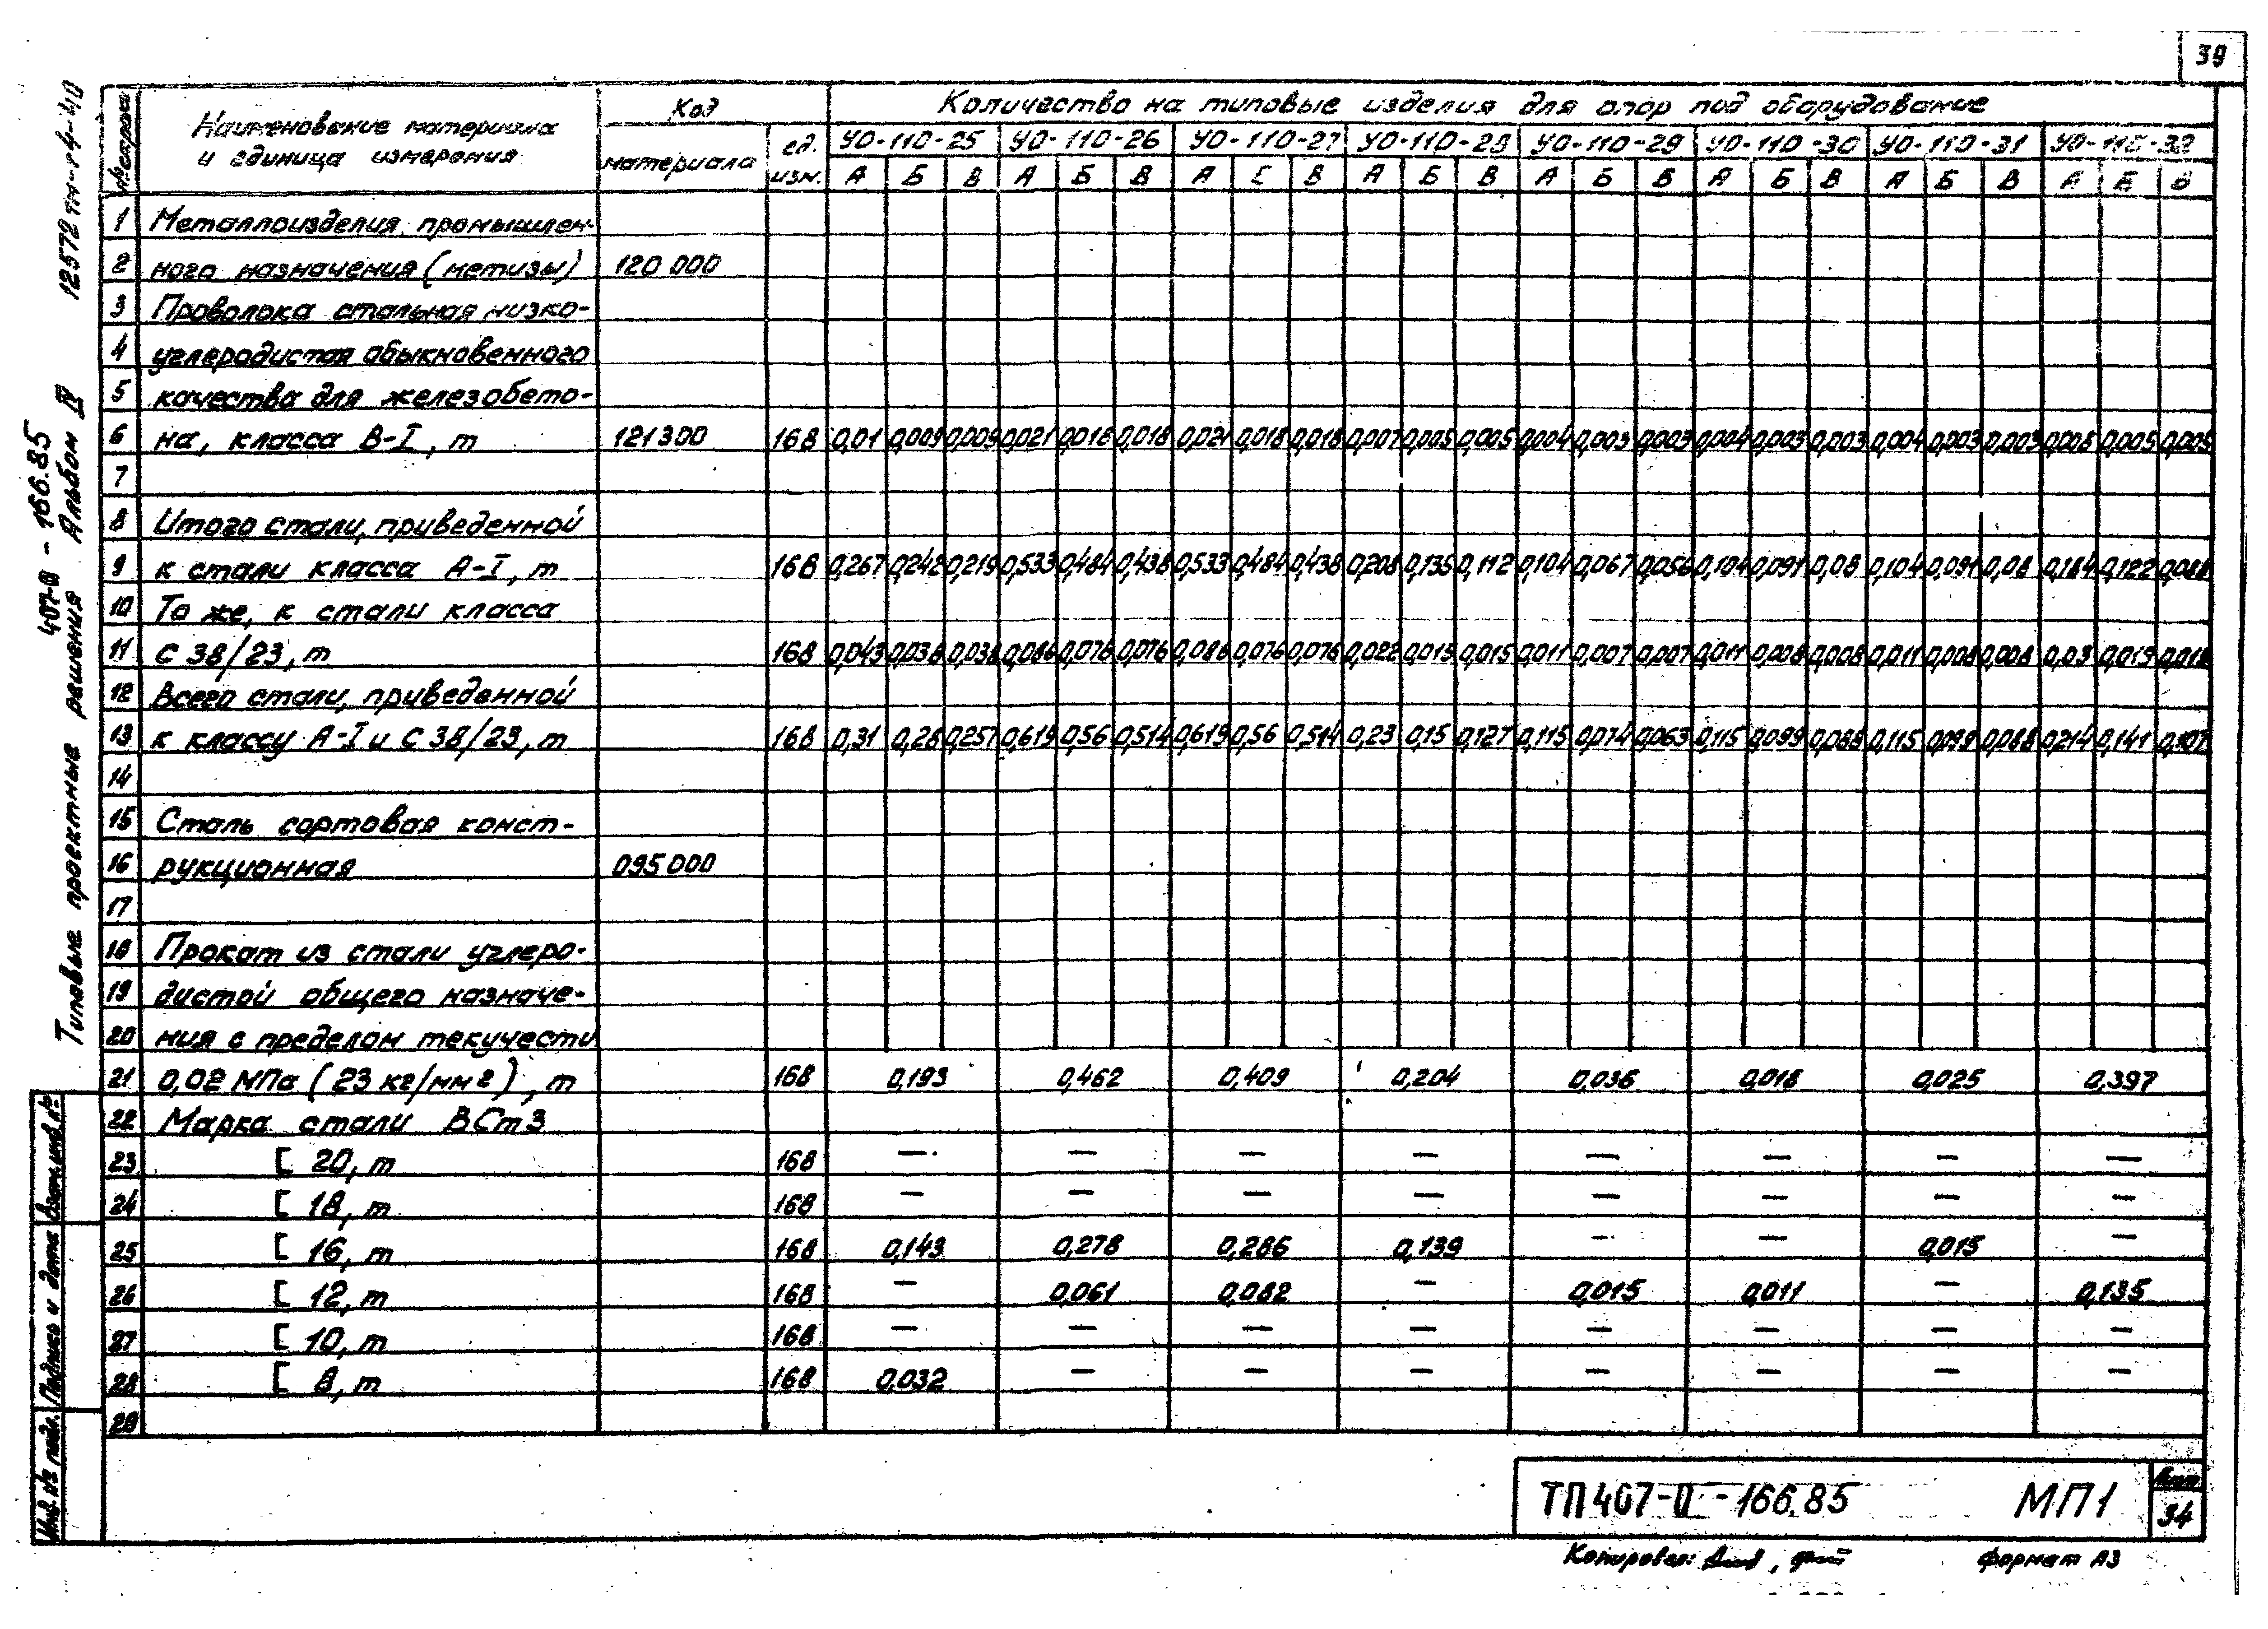 39
12572 тм-т4-40
407-0-166.85
Типовые проектные решения Альбом IV
№ строки Наименование материала и единица измерения Код Количество на типовые изделия для опор под оборудование
материала ед. изм. УО-110-25 УО-110-26 УО-110-27 УО-110-28 УО-110-29 УО-110-30 УО-110-31 УО-110-32
А Б В А Б В А Б В А Б В А Б Б А Б В А Б В А Б В
1 Металлоизделия промышлен-
2 ного назначения (метизы) 120 000
3 Проволока стальная низко-
4 углеродистая обыкновенного
5 качества для железобето-
6 на, класса В-I, т 121300 168 0,01 0,009 0,009 0,021 0,018 0,018 0,021 0,018 0,018 0,007 0,005 0,005 0,004 0,003 0,003 0,004 0,003 0,003 0,004 0,003 0,003 0,008 0,005 0,005
7
8 Итого стали, приведенной
9 к стали класса А-I, т 168 0,267 0,242 0,219 0,533 0,484 0,438 0,533 0,484 0,438 0,208 0,135 0,112 0,104 0,067 0,056 0,104 0,091 0,08 0,104 0,091 0,08 0,184 0,122 0,088
10 То же, к стали класса
11 С 38/23, т 168 0,043 0,038 0,038 0,086 0,076 0,076 0,086 0,076 0,076 0,022 0,015 0,015 0,011 0,007 0,007 0,011 0,008 0,008 0,011 0,008 0,008 0,03 0,019 0,019
12 Всего стали, приведенной
13 к классу А-I и С 38/23, т 168 0,31 0,28 0,257 0,619 0,56 0,514 0,619 0,56 0,514 0,23 0,15 0,127 0,115 0,074 0,063 0,115 0,099 0,088 0,115 0,099 0,088 0,214 0,141 0,107
14
15 Сталь сортовая конст-
16 рукционная 095000
17
18 Прокат из стали углеро-
19 дистой общего назначе-
20 ния с пределом текучести
21 0,02 МПа (23 кг/мм2), т 168 0,193 0,462 0,409 0,204 0,036 0,018 0,025 0,397
22 Марка стали ВСт3
23 [ 20, т 168 — — — — — — — —
24 [ 18, т 168 — — — — — — — —
25 [ 16, т 168 0,143 0,278 0,286 0,139 — — 0,015 —
26 [ 12, т 168 — 0,061 0,082 — 0,015 0,011 — 0,135
27 [ 10, т 168 — — — — — — — —
28 [ 8, т 168 0,032 — — — — — — —
29
Инв. № подл. Подпись и дата Взам. инв. №
ТП 407-0-166.85 МП1 Лист 34
Копировал:
формат А3